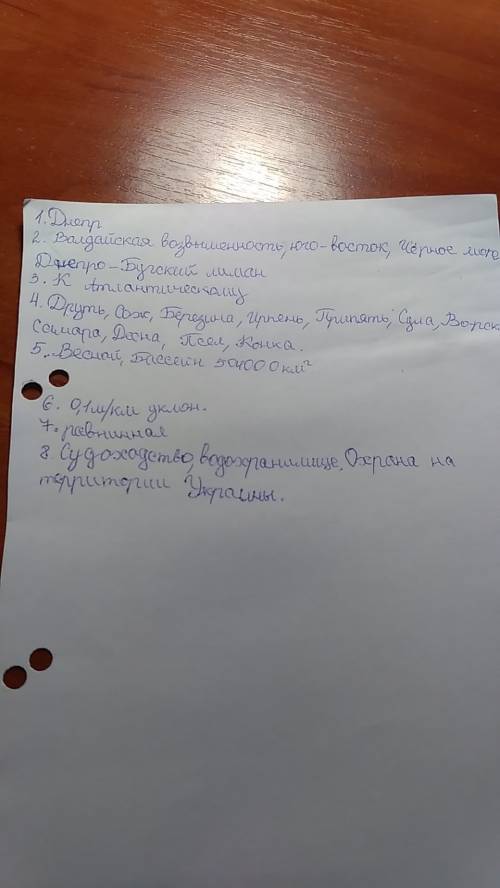 1. Днепр
2. Валдайская возвышенность, юго-восток, Чёрное море
Днепро-Бугский лиман
3. К Атлантическому
4. Друть, Сож, Березина, Ирпень, Припять, Сула, Ворскл
Самара, Десна, Псел, Конка.
5. Весной, Бассейн 504000 км²
6. 0,1м/км уклон.
7. равнинная
8. Судоходство, водохранилище, Охрана на
территории Украины.